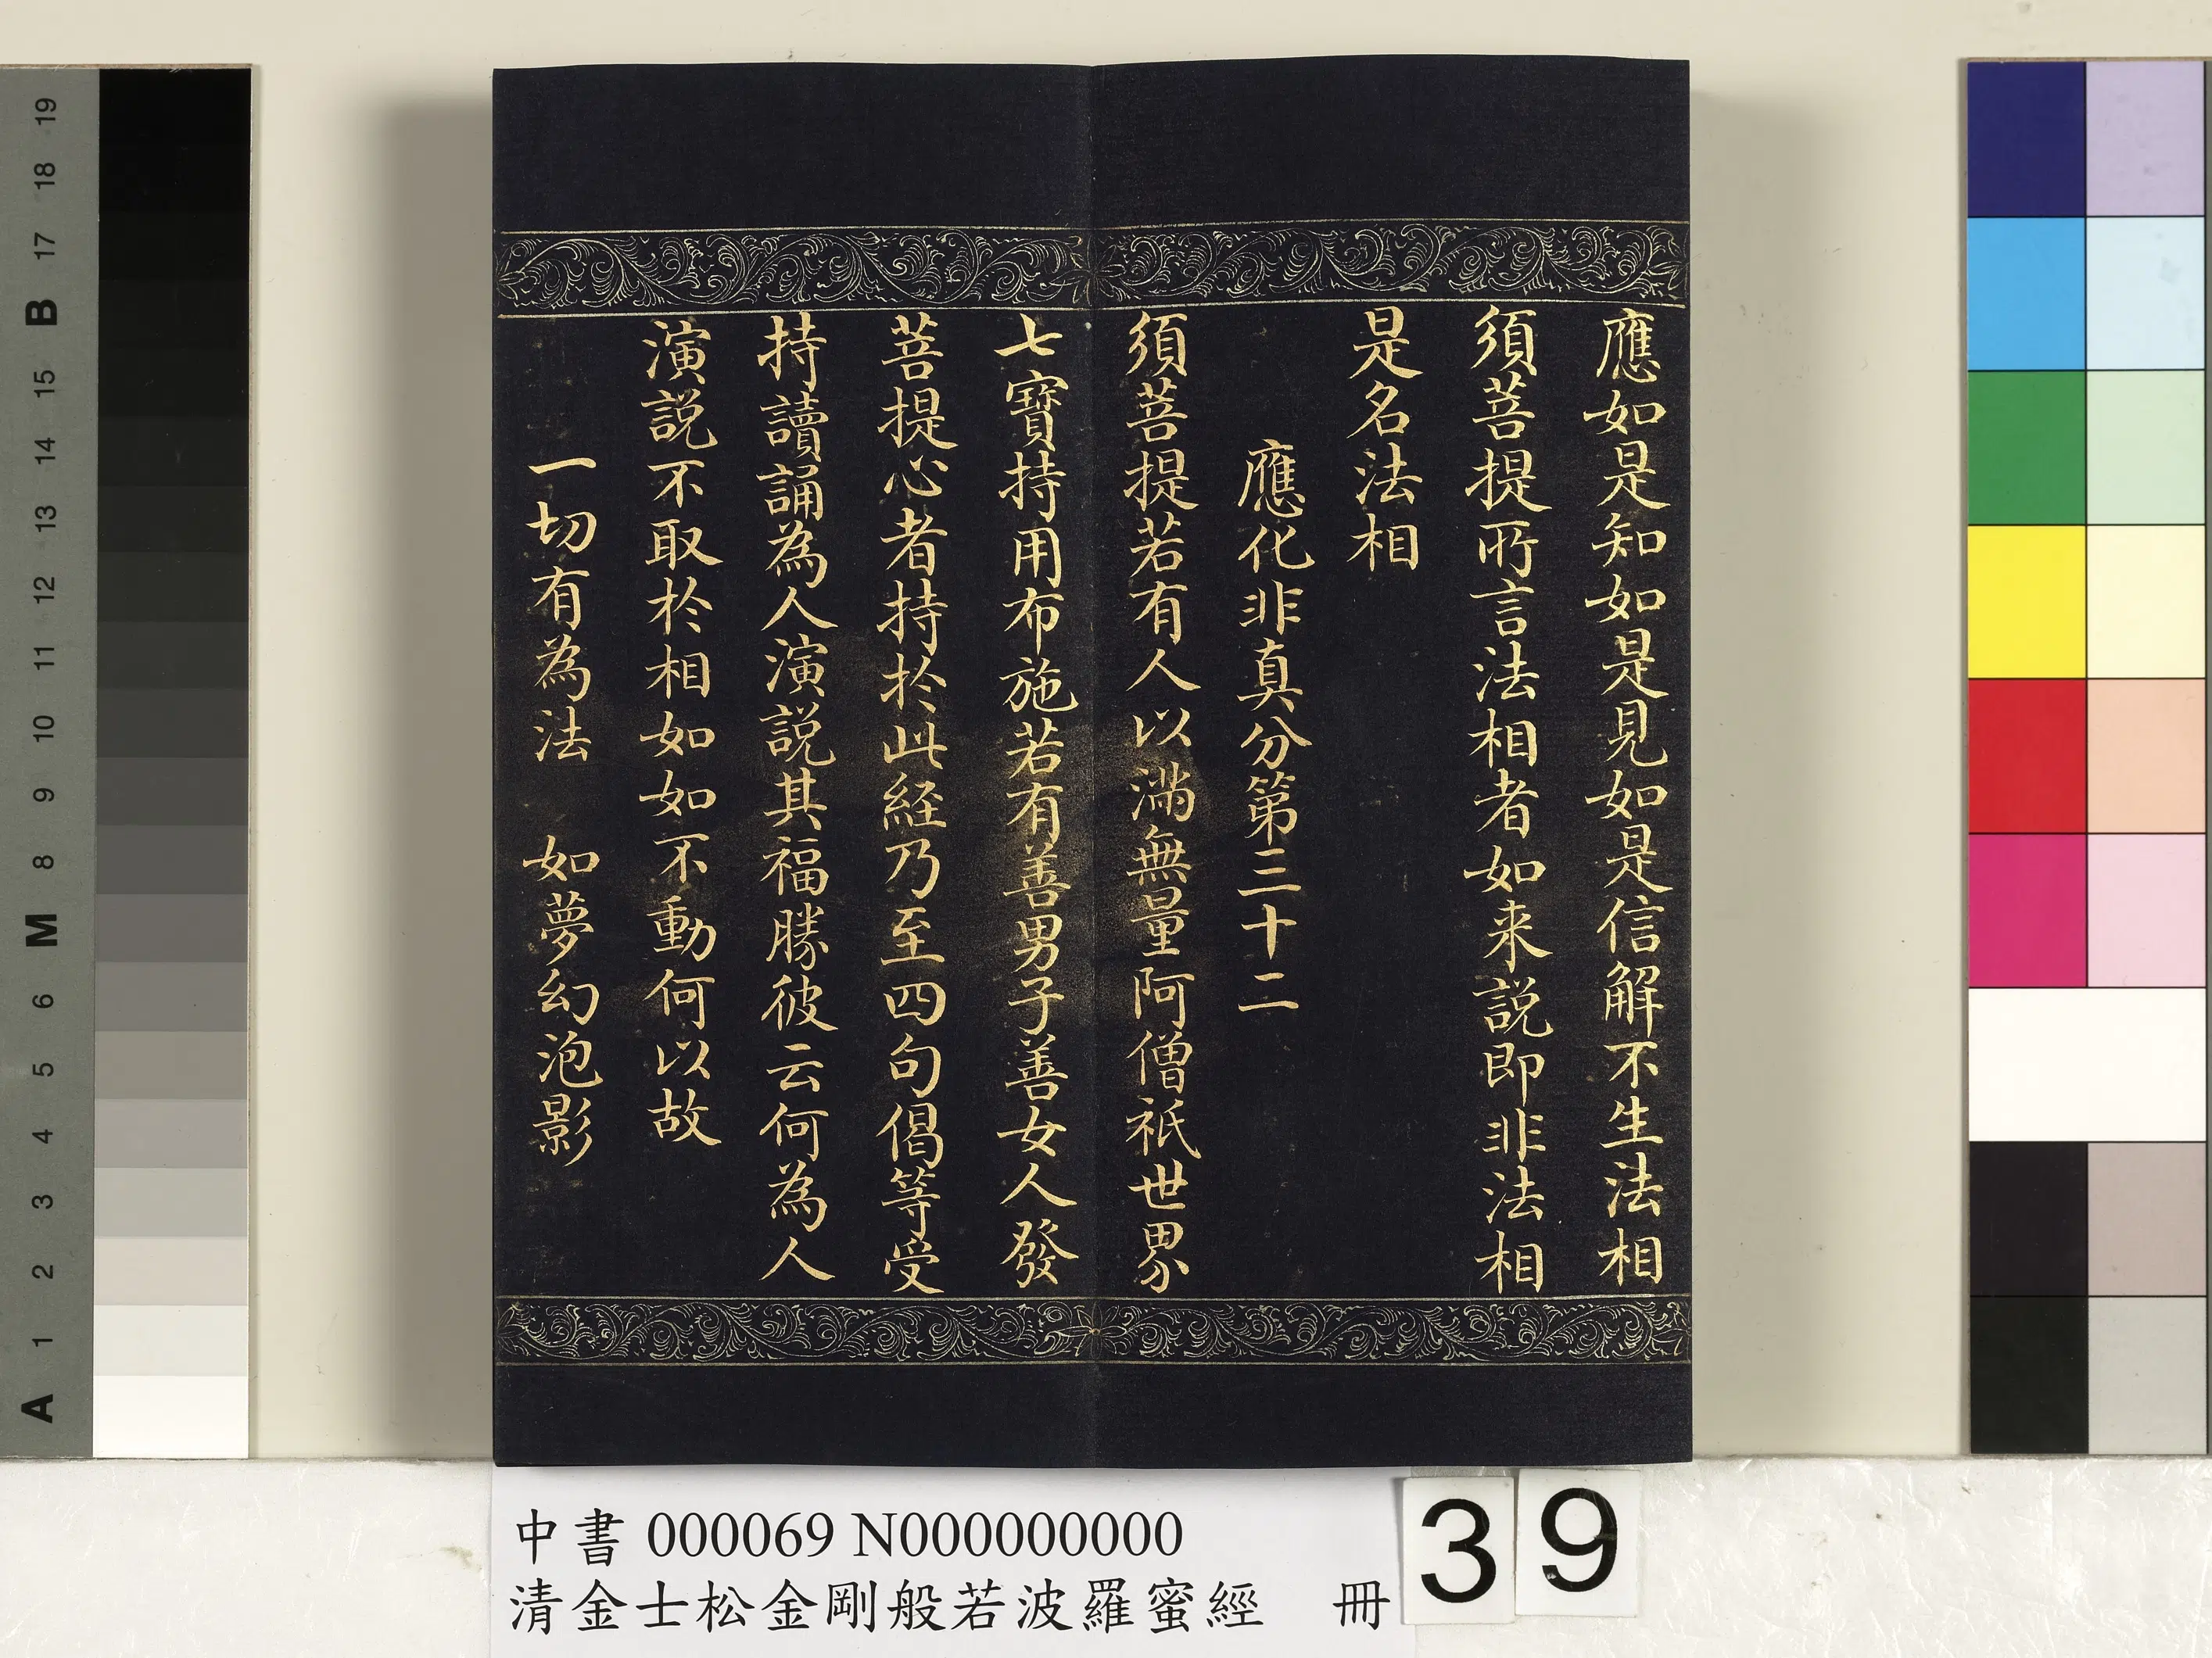 應如是知如是見如是信解不生法相
須菩提所言法相者如来說即非法相
是名法相
應化非真分第三十二
須菩提若有人以滿無量阿僧祇世界
七寶持用布施若有善男子善女人發
菩提心者持於此経乃至四句偈等受
持讀誦為人演說其福勝彼云何為人
演說不取於相如如不動何以故
一切有為法 如夢幻泡影
中書 000069 N000000000
清金士松金剛般若波羅蜜經 冊
39
19
18
17
B
15
14
13
12
11
10
9
8
M
6
5
4
3
2
1
A